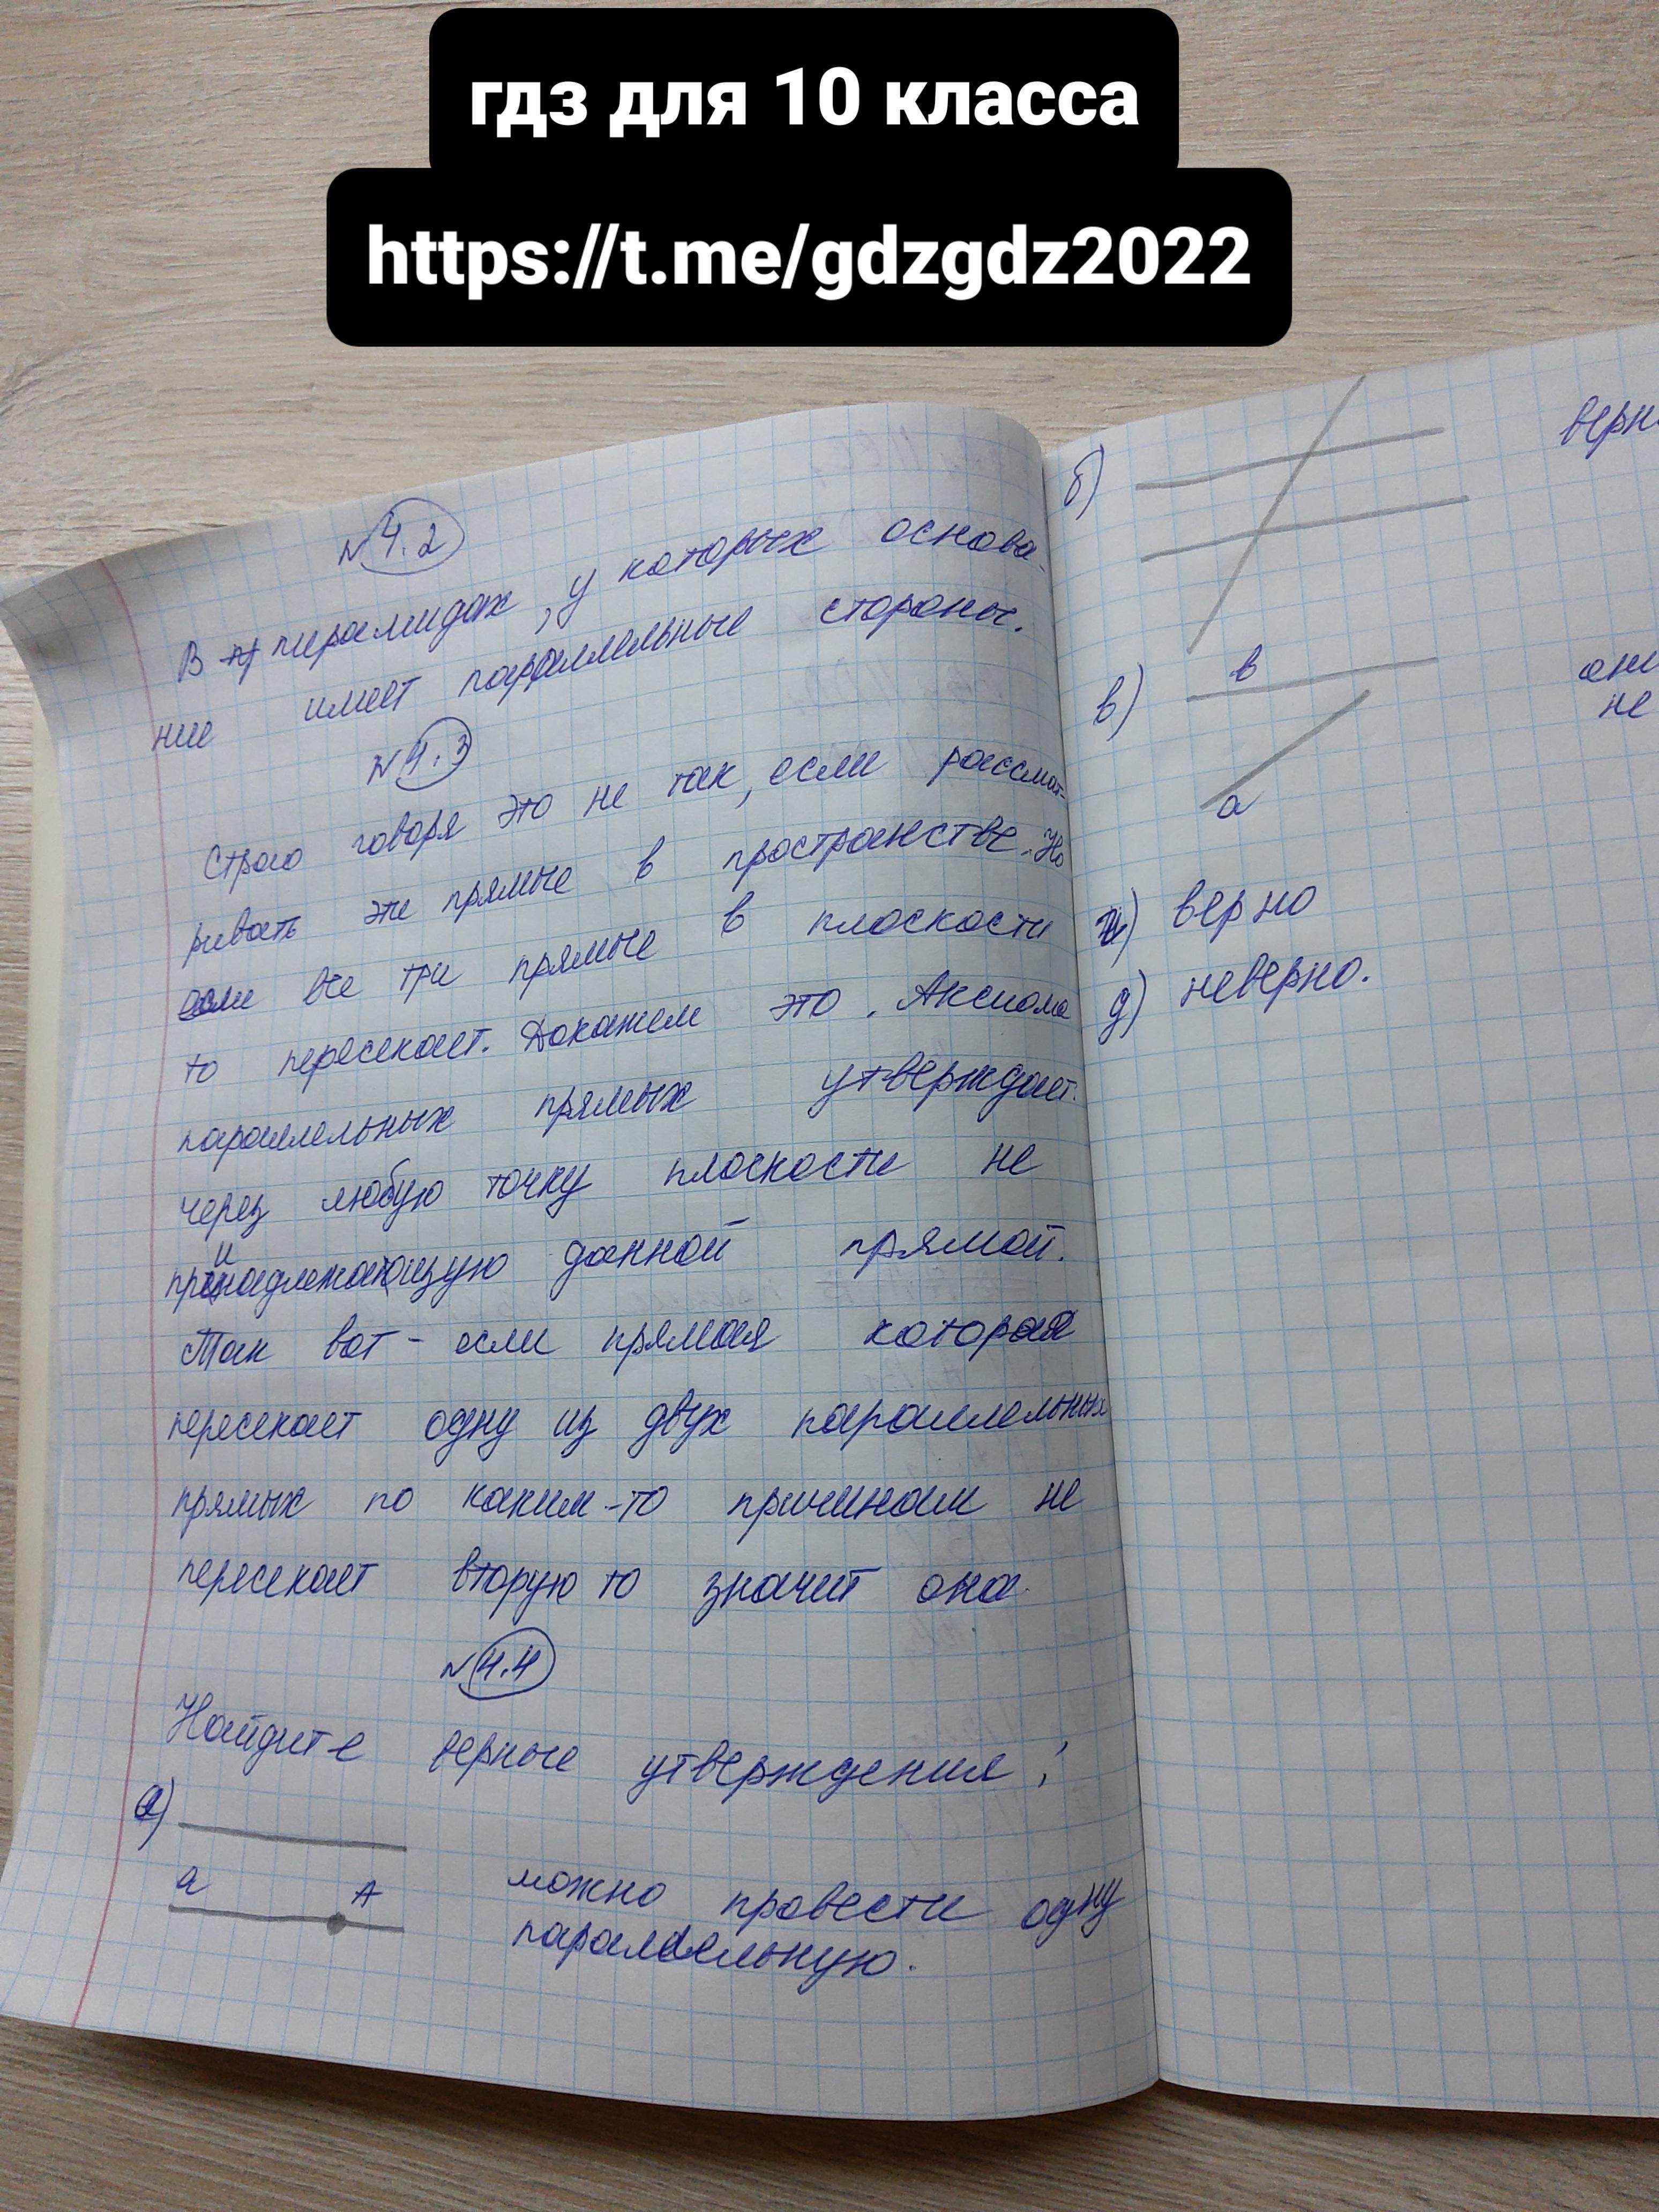 гдз для 10 класса
https://t.me/gdzgdz2022
N 4.2
В пирамидах, у которых основа-
ние имеет параллельные стороны.
N 4.3
Строго говоря это не так, если рассмат-
ривать эти прямые в пространстве. Но
если все три прямые в плоскости
то пересекает. Докажем это. Аксиома
параллельных прямых утверждает:
через любую точку плоскости не
принадлежающую данной прямой.
Так вот - если прямая которая
пересекает одну из двух параллельных
прямых по каким-то причинам не
пересекает вторую то значит она
N 4.4
Найдите верные утверждения:
а)
а А можно провести одну
параллельную.
б) верн
в) в
не
а
верно
д) неверно.